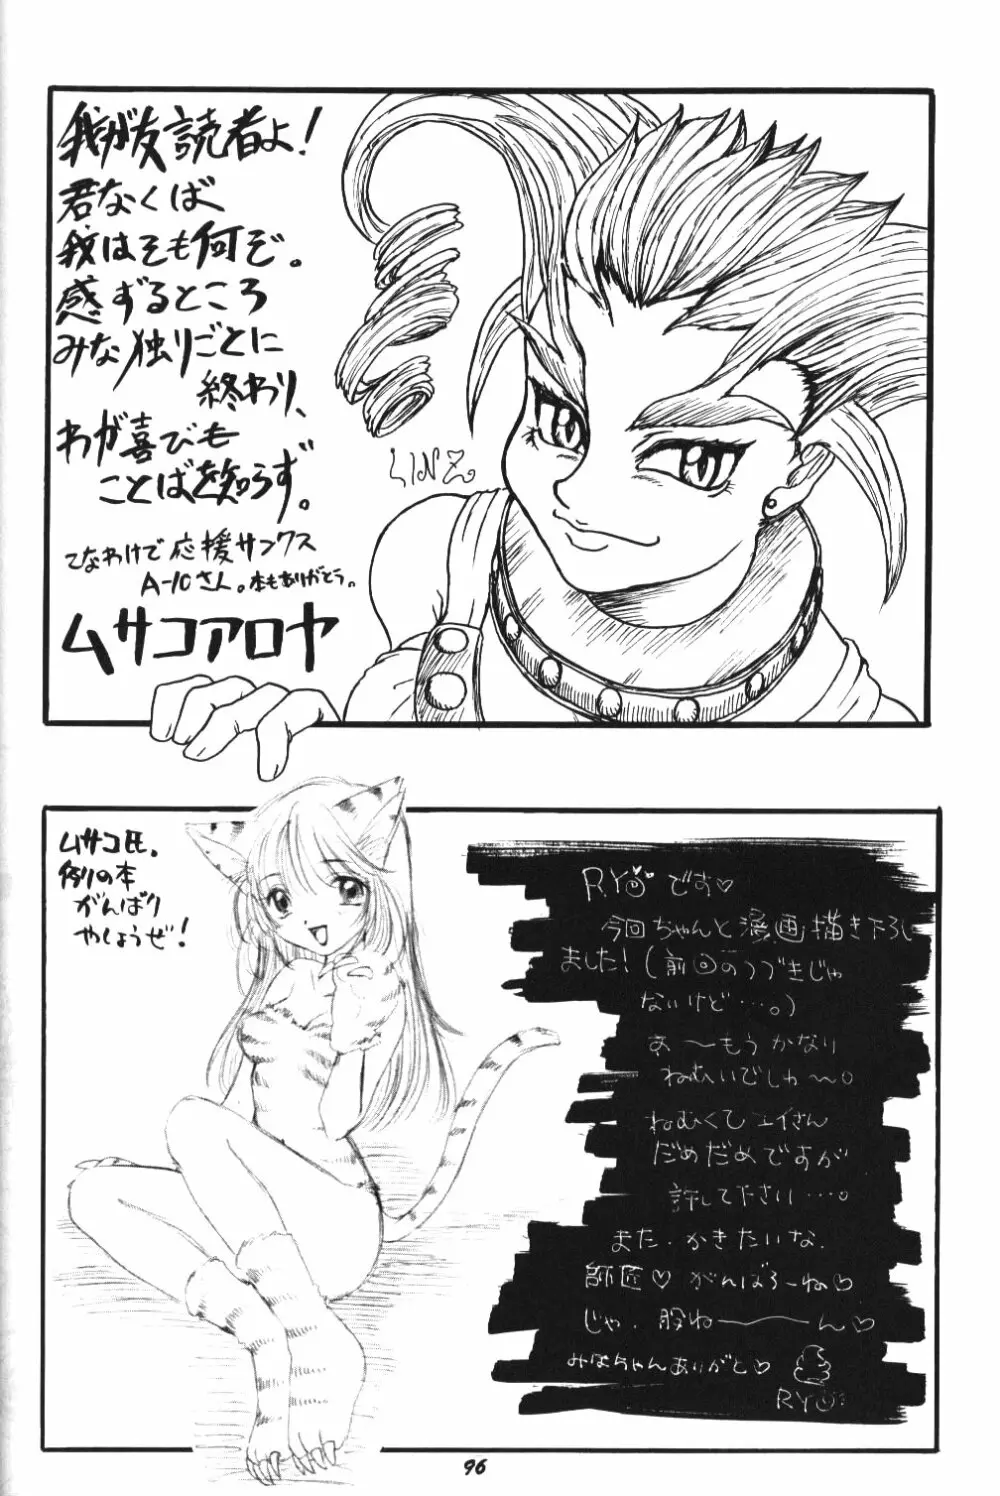 我が友読者よ!
君なくば
我はそも何ぞ。
感ずるところ
みな独りごとに
終わり、
わが喜びも
ことばを知らず。
LINZ
てなわけで応援サンクス
A-10さん。本もありがとう。
ムサコアロヤ
ムサコ氏。
例の本
がんばり
やしょうぜ!
RYOです♡
今回ちゃんと漫画描き下ろし
ました!(前回のつづきじゃ
ないけど…。)
あ〜もうかなり
ねむいでしゅ〜。
ねむくてエイさん
だめだめですが
許して下さい…。
また、かきたいな。
師匠♡がんばろーね♡
じゃ、股ね――ん♡
みほちゃんありがと♡
RYO
96